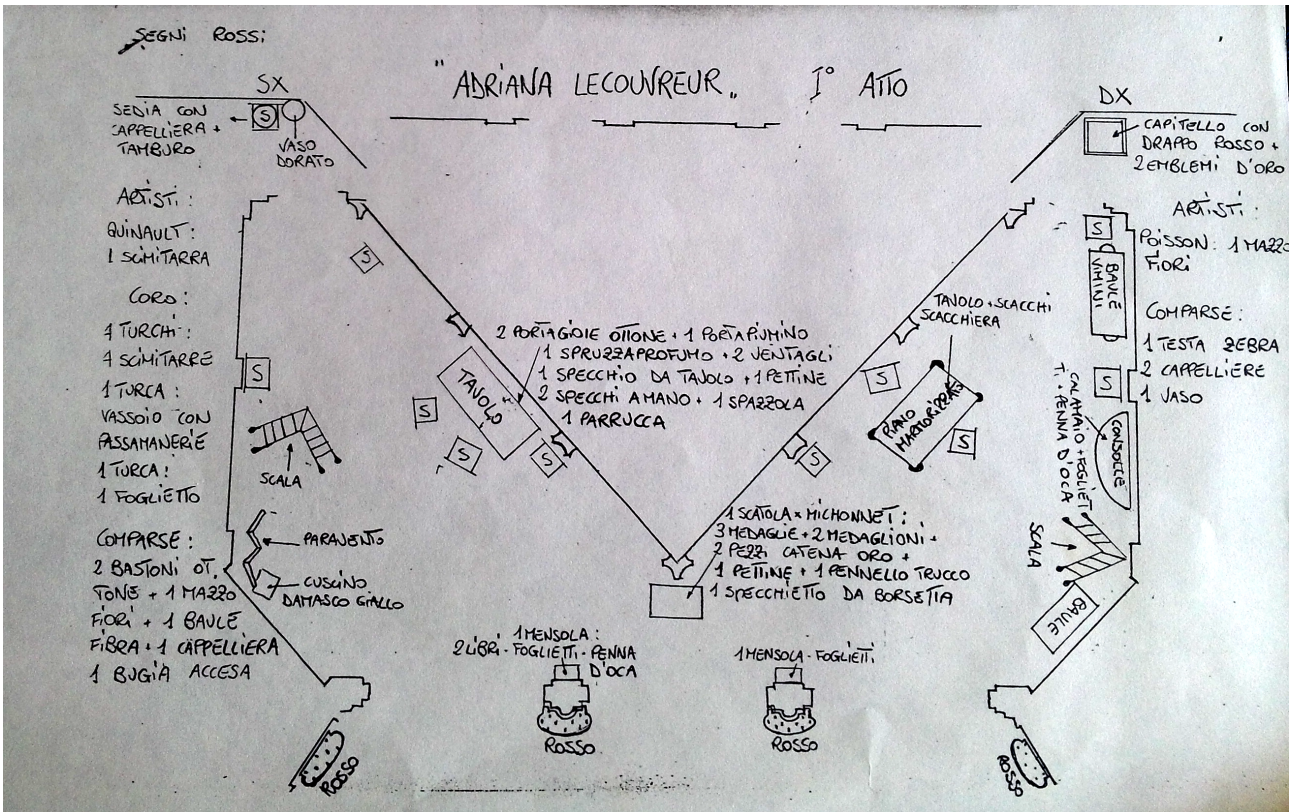 SEGNI ROSSI
"ADRIANA LECOUVREUR" I° ATTO
SX
SEDIA CON
CAPPELLIERA +
TAMBURO
S
VASO
DORATO
DX
CAPITELLO CON
DRAPPO ROSSO +
2 EMBLEMI D'ORO
ARTISTI:
QUINAULT:
1 SCIMITARRA
CORO:
4 TURCHI:
4 SCIMITARRE
1 TURCA:
VASSOIO CON
PASSAMANERIE
1 TURCA:
1 FOGLIETTO
COMPARSE:
2 BASTONI OT.
TONE + 1 MAZZO
FIORI + 1 BAULE
FIBRA + 1 CAPPELLIERA
1 BUGIA ACCESA
S
S
SCALA
PARAVENTO
CUSCINO
DAMASCO GIALLO
2 PORTAGIOIE OTTONE + 1 PORTAPIUMINO
1 SPRUZZAPROFUMO + 2 VENTAGLI
1 SPECCHIO DA TAVOLO + 1 PETTINE
2 SPECCHI A MANO + 1 SPAZZOLA
1 PARRUCCA
TAVOLO
S
S
S
TAVOLO + SCACCHI
SCACCHIERA
S
PIANO
MARMORIZZATO
S
S
1 SCATOLA x MICHONNET:
3 MEDAGLIE + 2 MEDAGLIONI +
2 PEZZI CATENA ORO +
1 PETTINE + 1 PENNELLO TRUCCO
1 SPECCHIETTO DA BORSETTA
1 MENSOLA:
2 LIBRI - FOGLIETTI - PENNA
D'OCA
ROSSO
1 MENSOLA - FOGLIETTI
ROSSO
ARTISTI:
POISSON: 1 MAZZO
FIORI
COMPARSE:
1 TESTA ZEBRA
2 CAPPELLIERE
1 VASO
S
BAULE
VIMINI
S
CALAMAIO + FOGLIET
TI + PENNA D'OCA
CONSOLLE
SCALA
BAULE
ROSSO
ROSSO